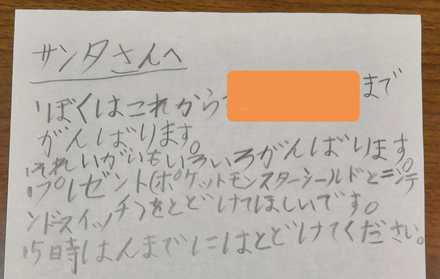 サンタさんへ
ぼくはこれから まで
がんばります。
それいがいもいろいろがんばります。
プレゼント(ポケットモンスターシールドとニンテ
ンドースイッチ)をとどけてほしいです。
5時はんまでにはとどけてください。